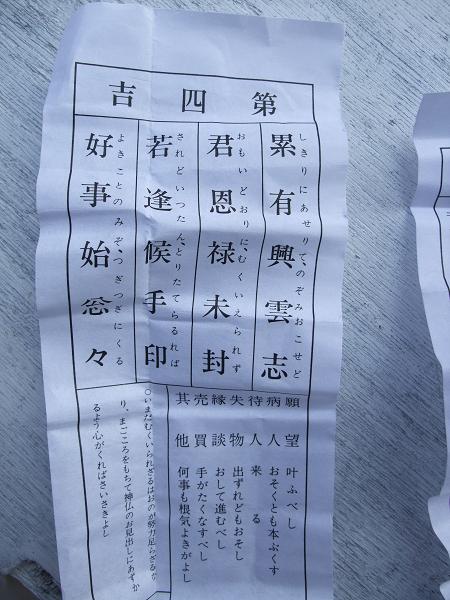 第四吉
累有興雲志
しきりにあせりて、のぞみおこせど
君恩禄未封
おもいどおりに、むくいえられず
若逢候手印
されどいつたん、とりたてらるれば
好事始忩々
よきことのみぞ、つぎつぎにくる
願望 叶ふべし
病人 おそくとも本ぶくす
待人 来る
失物 出ずれどもおそし
縁談 おして進むべし
売買 手がたくなすべし
其他 何事も根気よきがよし
○いまだむくいられざるはおのが努力足らざる
り、まごころをもちて神仏のお見出しにあずか
るよう心がくればさいさきよし